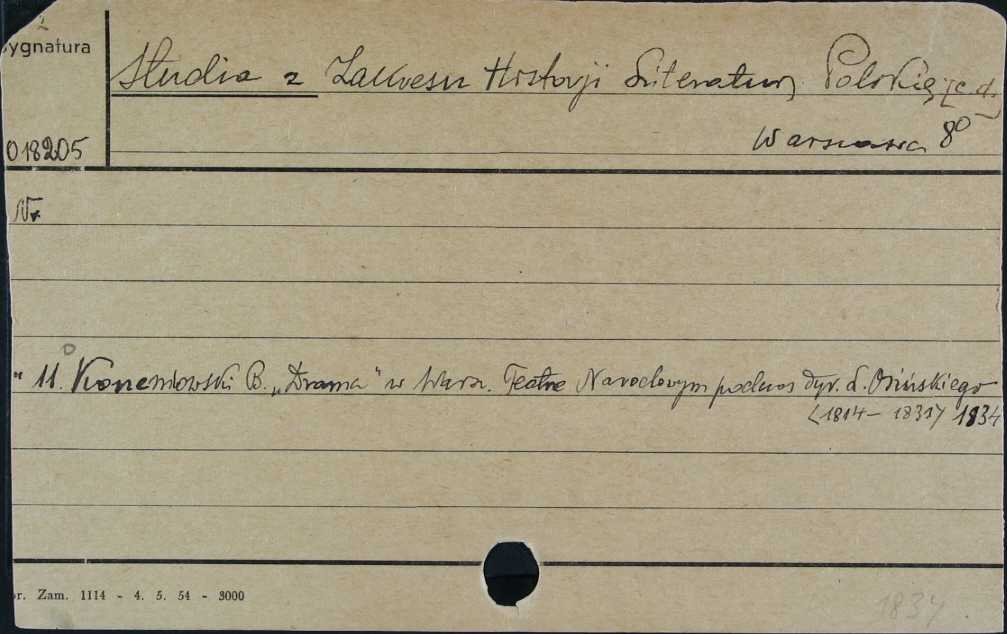 Sygnatura
Studia z Zakresu Historji Literatury Polskiej [c.d.]
Warszawa 8°
018205
Nr.
" 11. Korzeniowski B. „Drama" w Warsz. Teatrze Narodowym podczas dyr. L. Osińskiego
(1814 - 1831) 1834
Zam. 1114 - 4. 5. 54 - 3000
1834